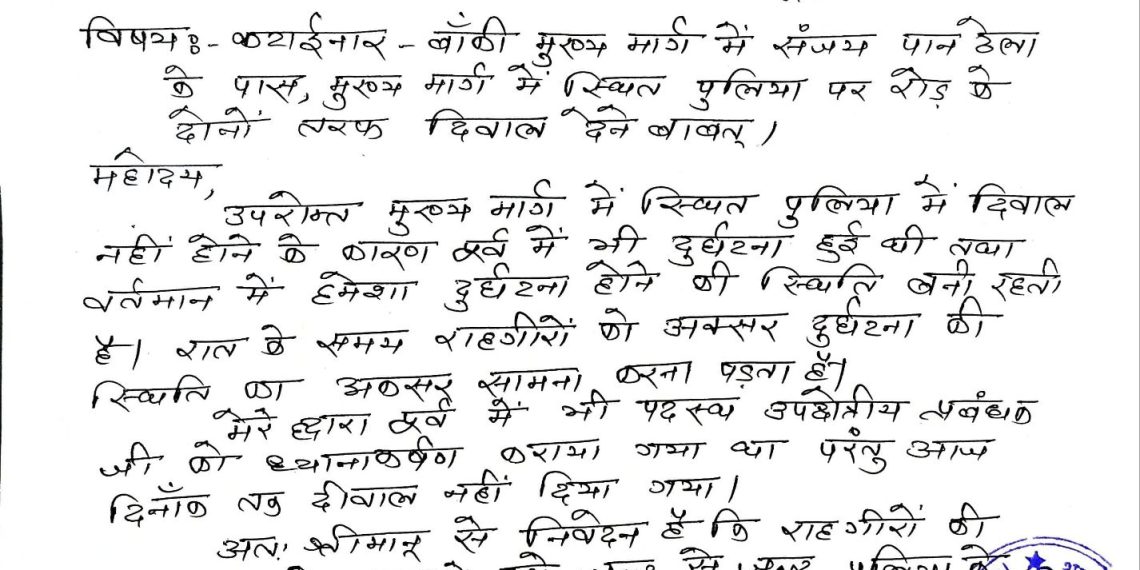 विषय:- कटाईनार - बाँकी मुख्य मार्ग में संजय पान ठेला
के पास, मुख्य मार्ग में स्थित पुलिया पर रोड़ के
दोनों तरफ दिवाल देने बाबत् ।
महोदय,
उपरोक्त मुख्य मार्ग में स्थित पुलिया में दिवाल
नहीं होने के कारण पूर्व में भी दुर्घटना हुई थी तथा
वर्तमान में हमेशा दुर्घटना होने की स्थिति बनी रहती
है। रात के समय राहगीरों को अक्सर दुर्घटना की
स्थिति का अकसर सामना करना पड़ता है।
मेरे द्वारा पूर्व में भी पदस्थ उपक्षेत्रीय प्रबंधक
जी को ध्यानाकर्षण कराया गया था परंतु आज
दिनाँक तक दीवाल नहीं दिया गया।
अतः श्रीमान् से निवेदन है कि राहगीरों की